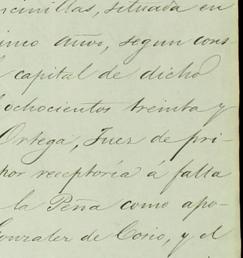 cinillas, situada en
inco años, segun cons
capital de dicho
ochocientos treinta y
Ortega, Juez de pri-
por receptoría á falta
la Peña como apo-
Gonzalez de Cosio, y el